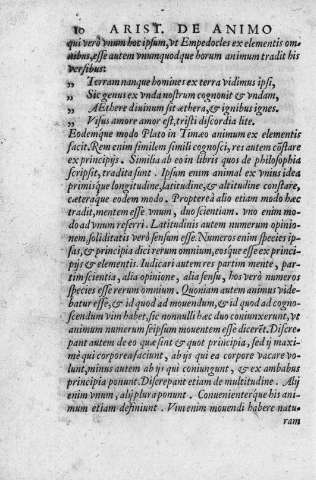 10 ARIST. DE ANIMO
qui verò vnum hoc ipsum, vt Empedocles ex elementis om
nibus, esse autem vnumquodque horum animum tradit his
versibus:
„ Terram nanque homines ex terra vidimus ipsi,
„ Sic genus ex vnda nostrum cognouit & vndam,
„ AEthere diuinum sic æthera, & ignibus ignes.
„ Visus amore amor est, tristi discordia lite.
Eodemque modo Plato in Timæo animum ex elementis
facit. Rem enim similem simili cognosci, res autem cōstare
ex principijs. Similia ab eo in libris quos de philosophia
scripsit, tradita sunt. Ipsum enim animal ex vnius idea
primisque longitudine, latitudine, & altitudine constare,
cæteraque eodem modo. Propterea alio etiam modo hæc
tradit, mentem esse vnum, duo scientiam. vno enim mo
do ad vnum referri. Latitudinis autem numerum opinio
nem, soliditatis verò sensum esse. Numeros enim species ip
sas, & principia dici rerum omnium, eosque esse ex princi
pijs & elementis. Iudicari autem res partim mente, par
tim scientia, alia opinione, alia sensu, hos verò numeros
species esse rerum omnium. Quoniam autem animus vide
batur esse, & id quod ad mouendum, & id quod ad cogno
scendum vim habet, sic nonnulli hæc duo coniunxerunt, vt
animum numerum seipsum mouentem esse diceret. Discre
pant autem de eo quæ sint & quot principia, sed ij maxi
mè qui corporea faciunt, ab ijs qui ea corpore vacare vo
lunt, minus autem ab ijs qui coniungunt, & ex ambabus
principia ponunt. Discrepant etiam de multitudine. Alij
enim vnum, alij plura ponunt. Conuenienterque his ani
mum etiam definiunt. Vim enim mouendi habere natu
ram